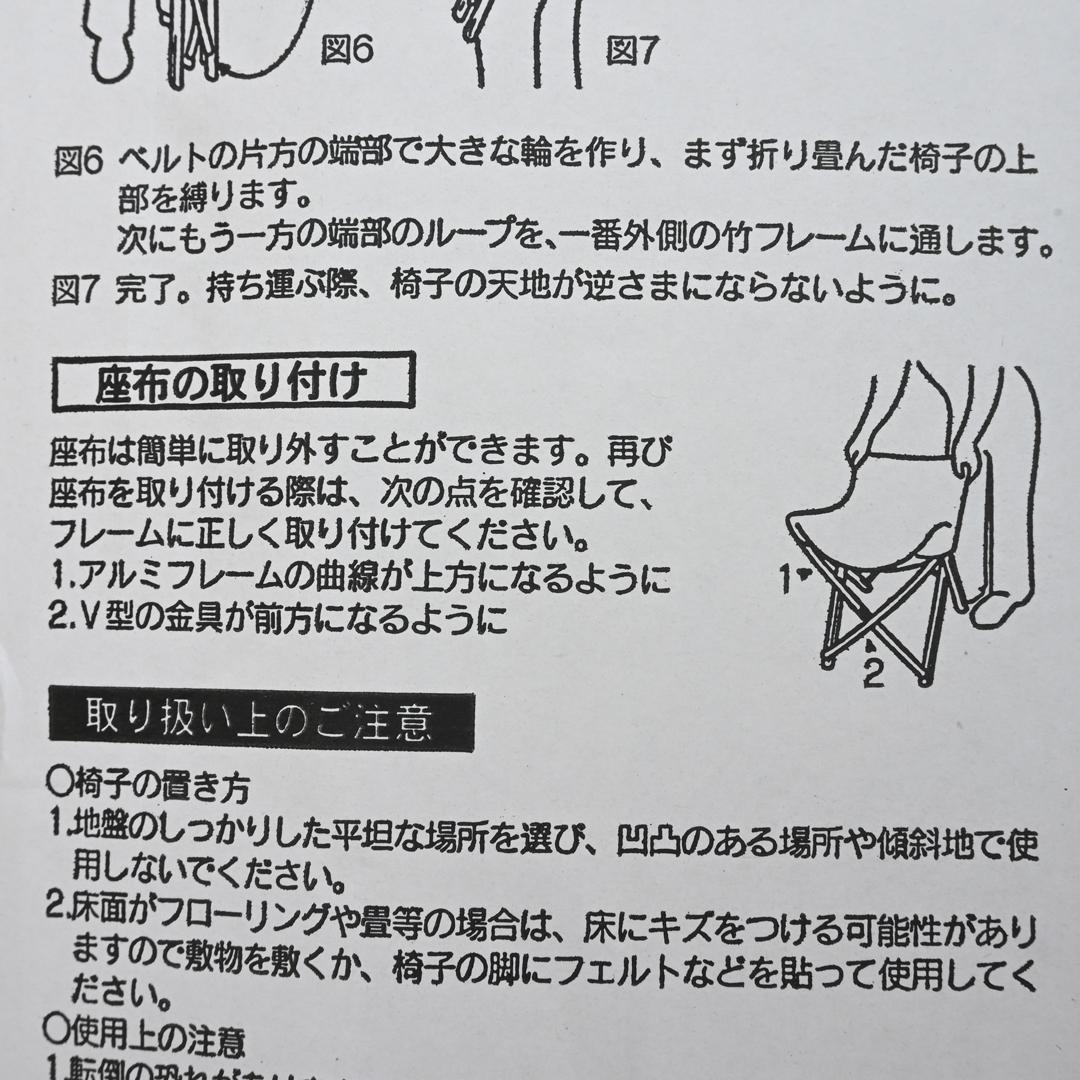 図6
図7
図6 ベルトの片方の端部で大きな輪を作り、まず折り畳んだ椅子の上
部を縛ります。
次にもう一方の端部のループを、一番外側の竹フレームに通します。
図7 完了。持ち運ぶ際、椅子の天地が逆さまにならないように。
座布の取り付け
座布は簡単に取り外すことができます。再び
座布を取り付ける際は、次の点を確認して、
フレームに正しく取り付けてください。
1.アルミフレームの曲線が上方になるように
2.V型の金具が前方になるように
1
2
取り扱い上のご注意
○椅子の置き方
1.地盤のしっかりした平坦な場所を選び、凹凸のある場所や傾斜地で使
用しないでください。
2.床面がフローリングや畳等の場合は、床にキズをつける可能性があり
ますので敷物を敷くか、椅子の脚にフェルトなどを貼って使用してく
ださい。
○使用上の注意
1.転倒の恐れがあり